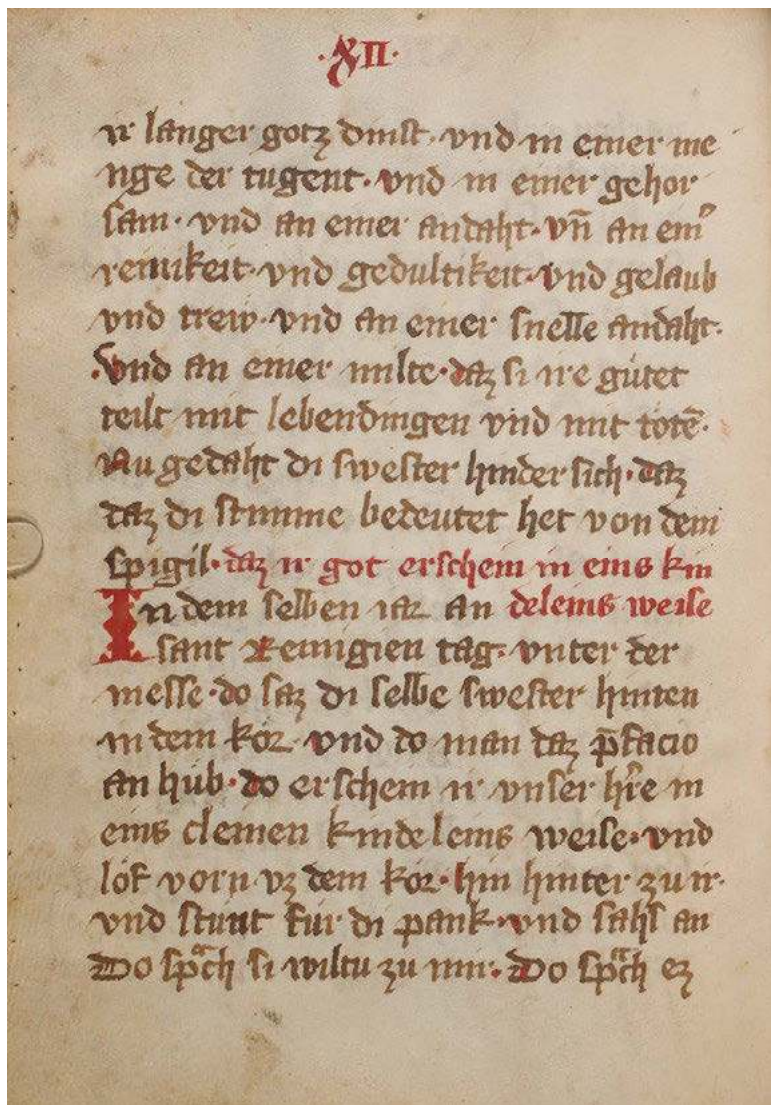 ·XII·
ir langer gotz dinst· vnd in einer me
nge der tugent· vnd in einer gehor
sam· vnd an einer andaht· vn̄ an ein͛
reinikeit· vnd gedultikeit· vnd gelaub
vnd trew· vnd an einer snelle andaht·
·Vnd an einer milte· daz si ire gu̍tet
teilt mit lebendingen vnd mit totē·
Nu gedaht di swester hinder sich· daz
daz di stimme bedeutet het von dem
spigil· daz ir got erschein in eins kin
In dem selben iar an deleins weise
sant Remigien tag· vnter der
messe· do saz di selbe swester hinten
in dem kor vnd do man daz p̄facio
an hub· do erschein ir vnser hr̄e in
eins cleinen kindeleins weise· vnd
lof vorn vz dem kor· hin hinter zu ir·
vnd stunt fur di pank· vnd sahs an
Do spͣch si wiltu zu mir· Do spͣch ez